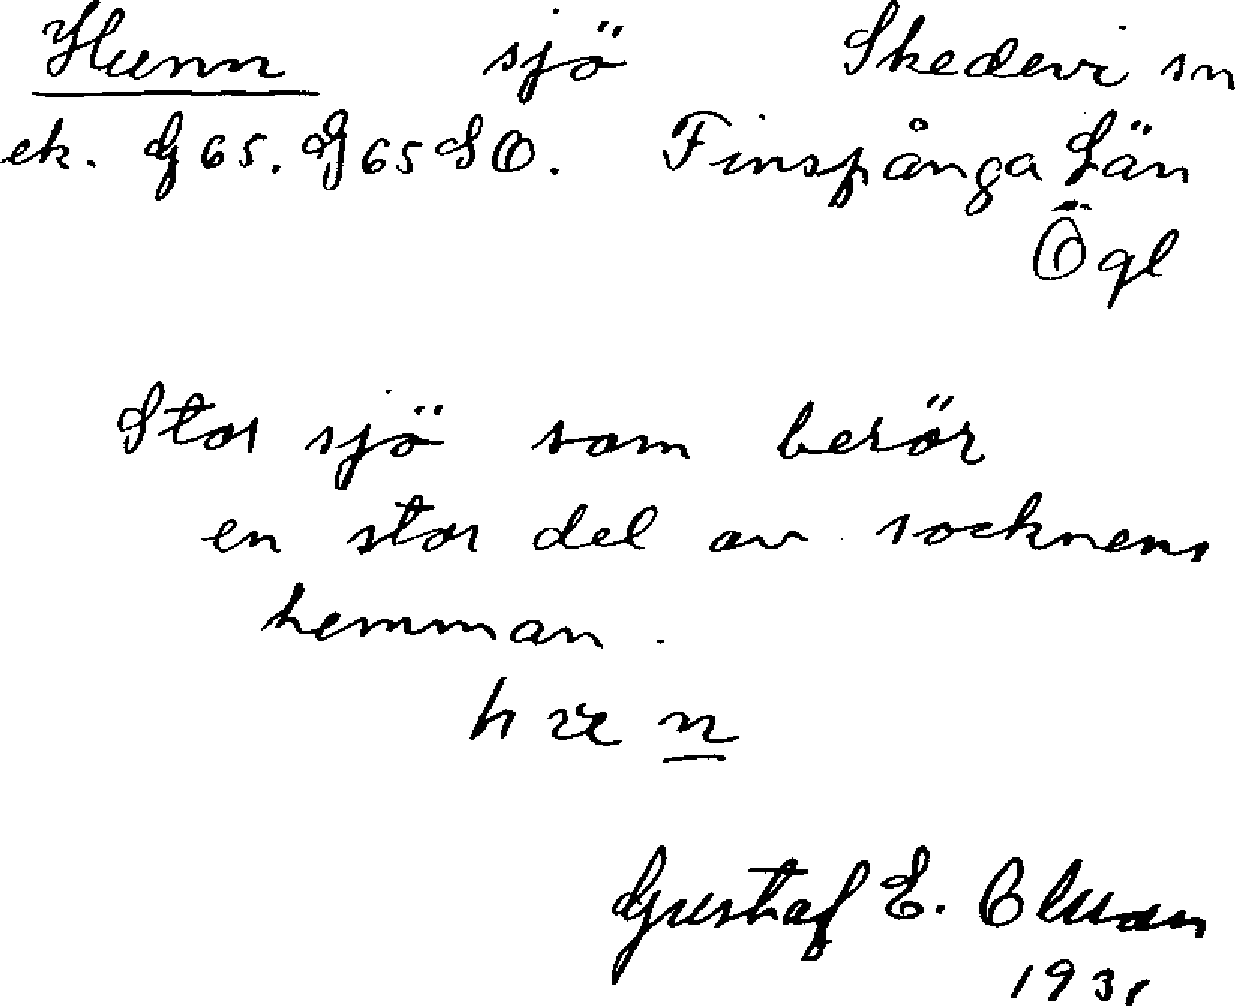 Hunn sjö Skedevi sn
ek. G65. G65SO. Finspånga Län
Ögl
Stor sjö som berör
en stor del av socknens
hemman.
h n
Gustaf E.
1931